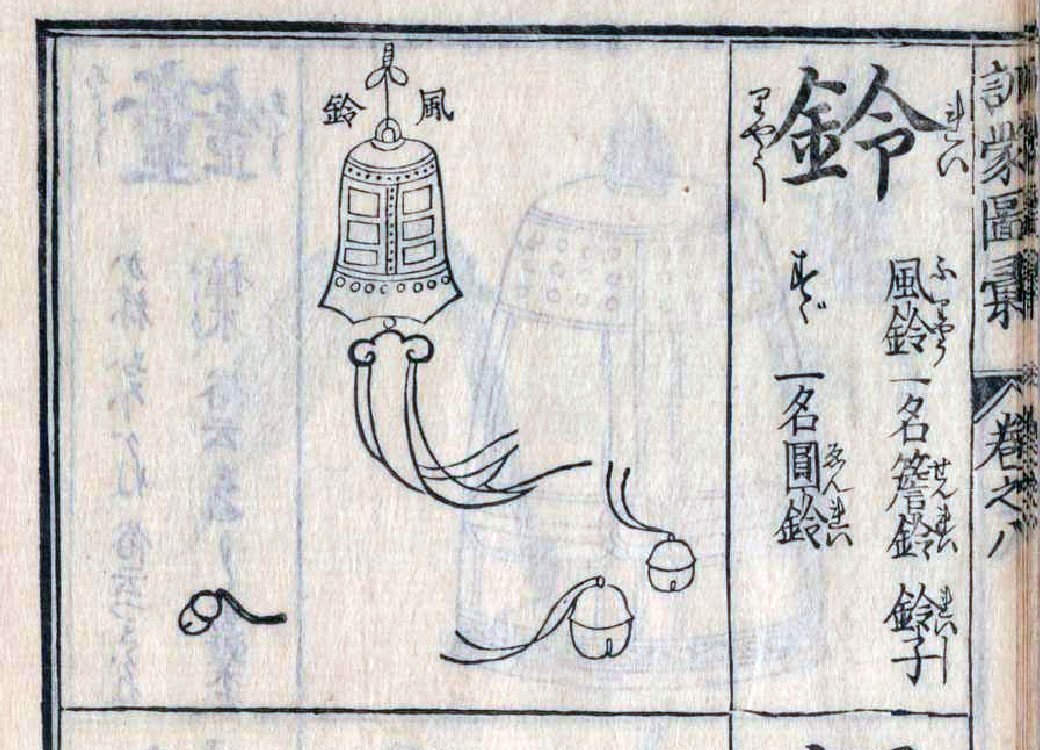 訓蒙圖彙 巻之八
鈴
れい
りやう
風鈴 一名簷鈴 鈴子
ふりやう せんれい れいし
すゞ 一名圓鈴
ゑんれい
風鈴